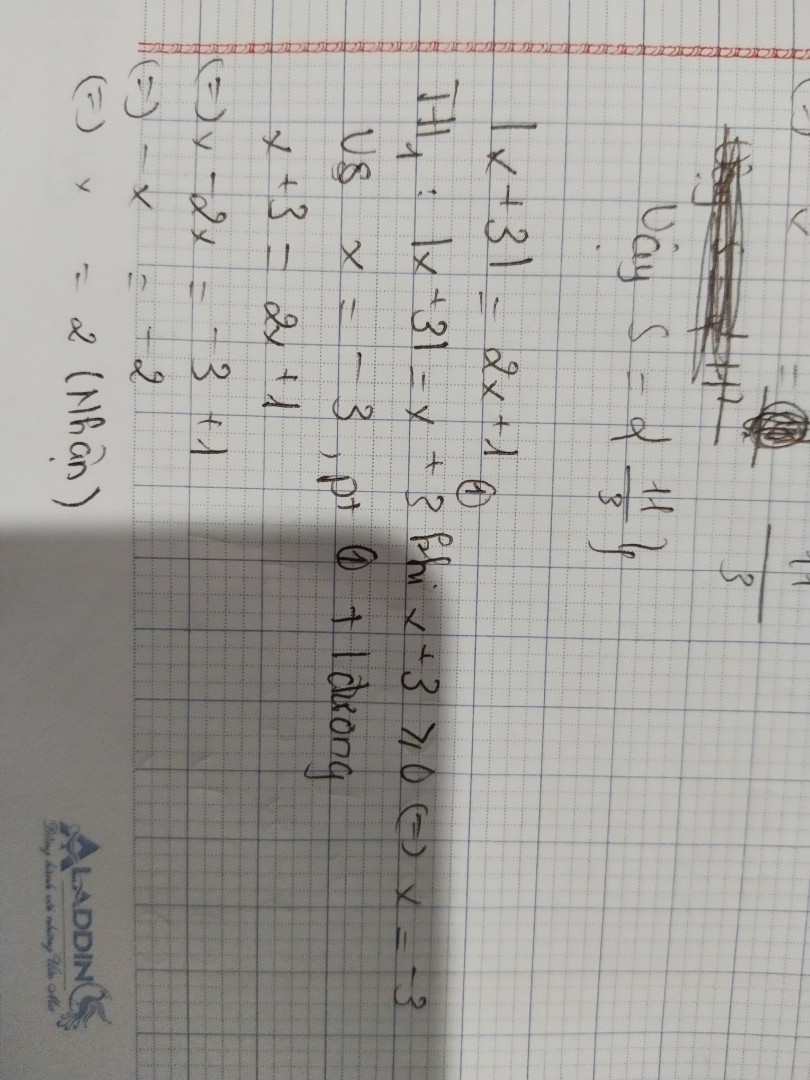 Vậy S = { 11/3 }
|x+3| = 2x+1 ①
TH1 : |x+3| = x + 3 khi x+3 ⩾ 0 (=) x = -3
Vs x = -3 , pt ① + | đương
x +3 = 2x +1
(=) x -2x = -3 +1
(=) -x = -2
(=) x = 2 (Nhận)
ALADDIN